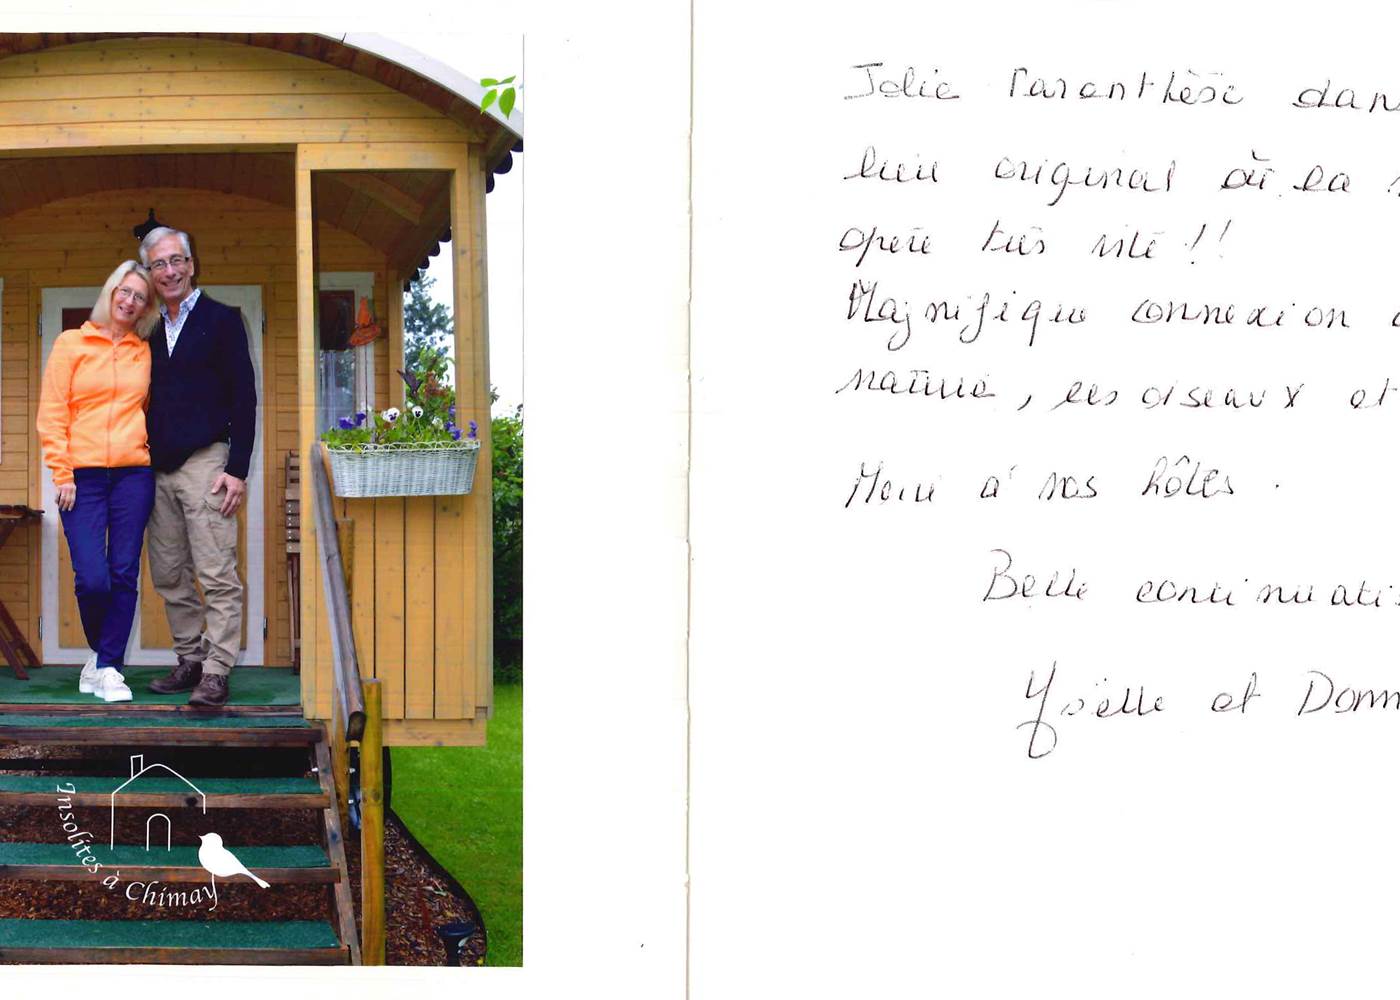 Insolites à Chimay
Jolie Parenthèse dans
lieu original où la
opère très vite !!
Magnifique connexion
nature, les oiseaux et
Merci à nos hôtes.
Belle continuati
Yoëlle et Domm